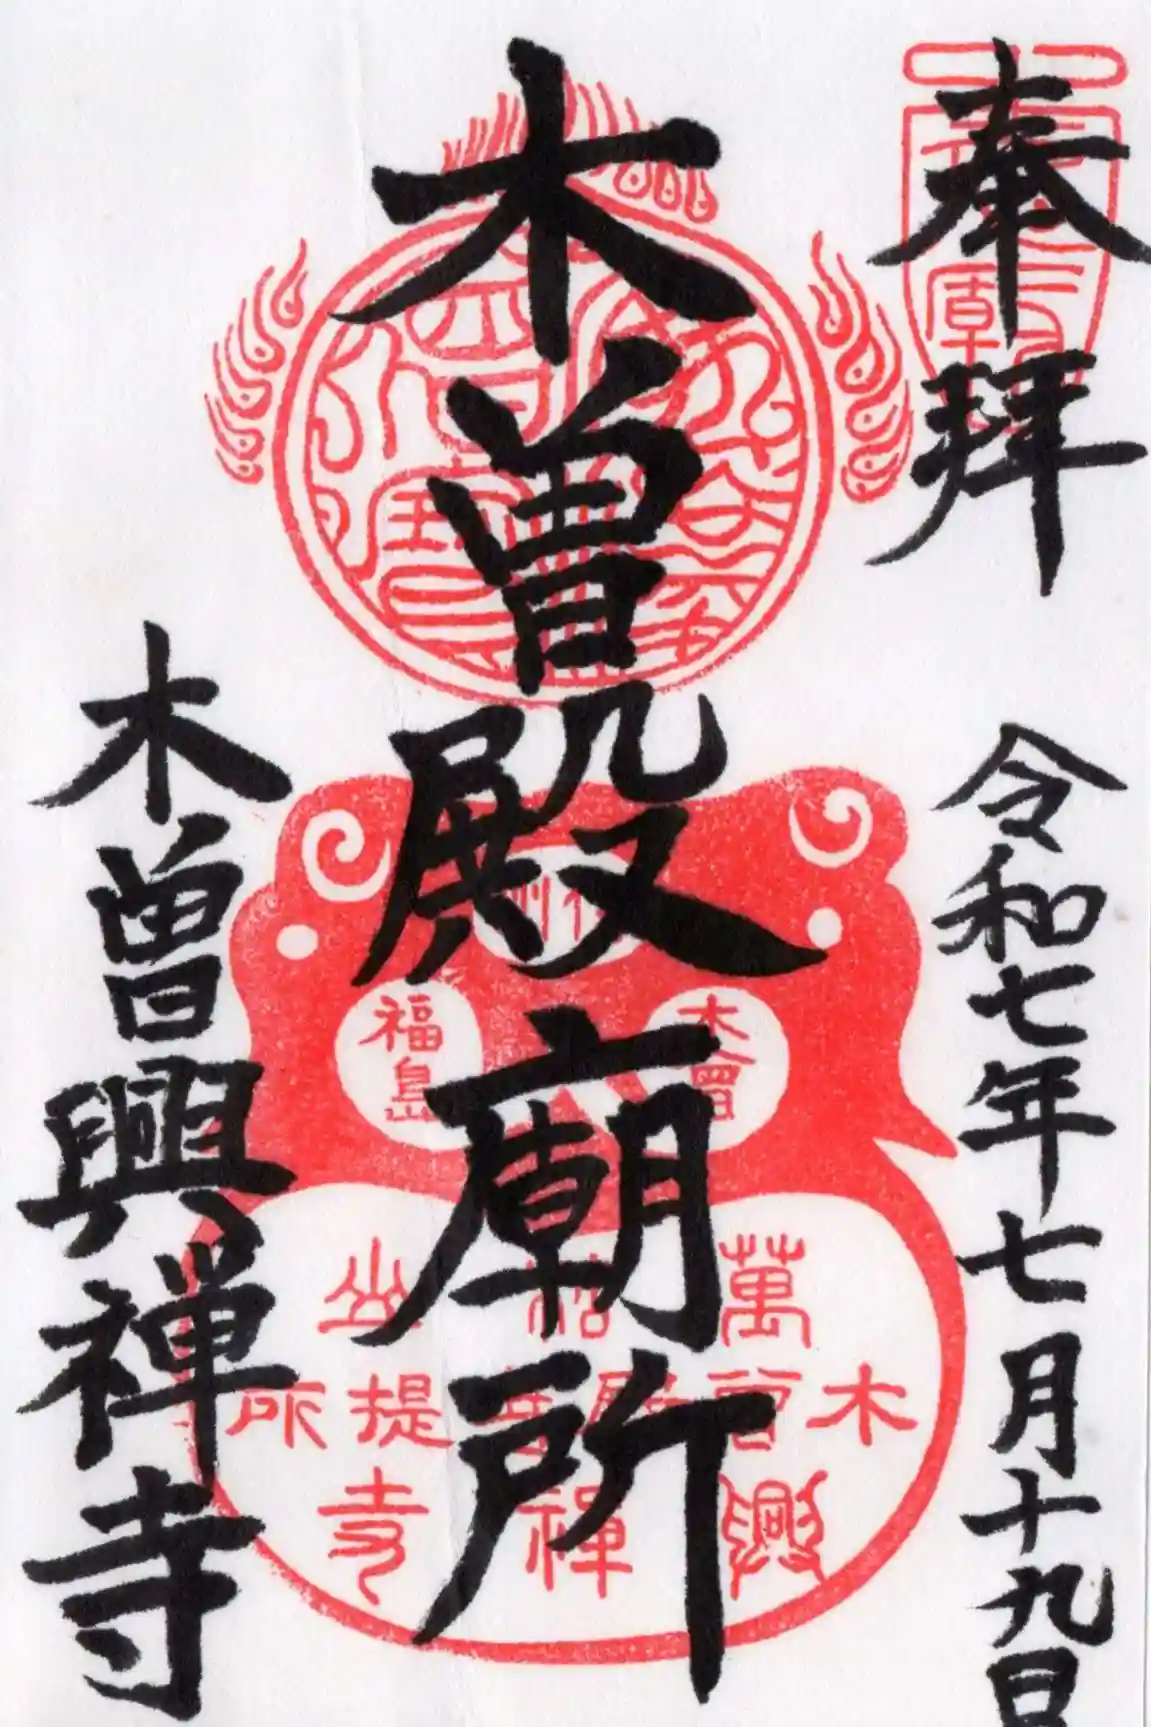 奉拝
令和七年七月十九日
木曽殿廟所
木曽興禅寺
福島
木曾
萬松山
木曽殿菩提所
興禅寺